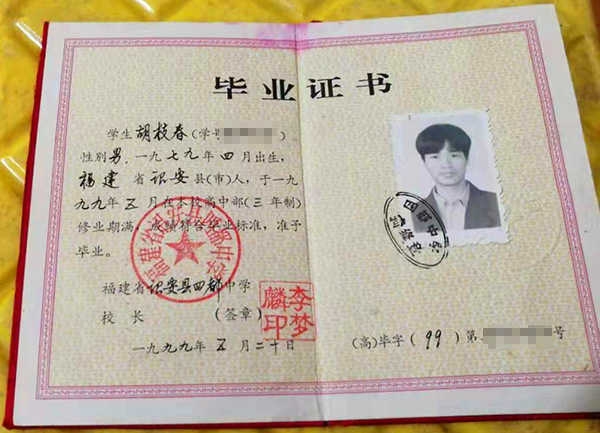 毕业证书
学生胡枝春(学号
).
性别男,一九七九年四月出生,
福建省诏安县(市)人,于一九
九九年五月在本校高中部(三年制)
修业期满,成绩符合毕业标准,准予
毕业。
福建省诏安县四都中学
校长
(签章)
李梦麟印
一九九九年五月二十日
福建省诏安县四都中学
(高)毕字(99)第
号